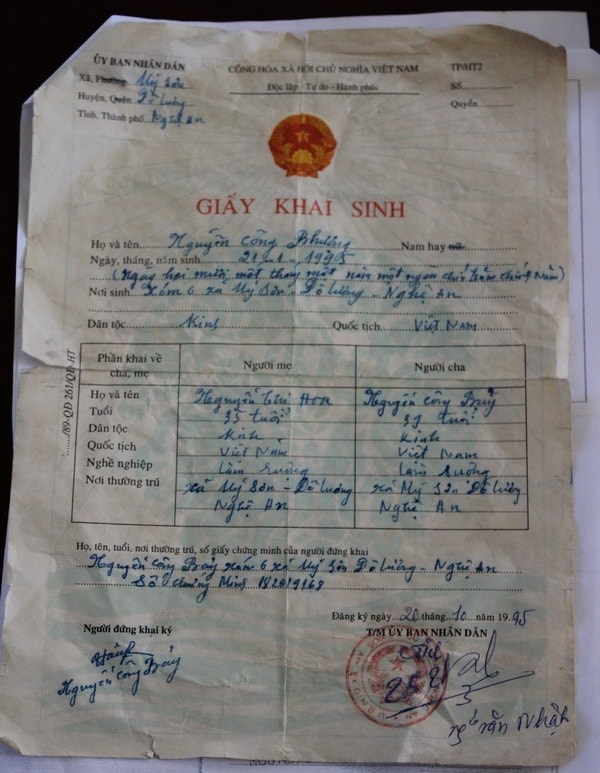 ỦY BAN NHÂN DÂN
Xã, Phường Mỹ Sơn
Huyện, Quận Đô Lương
Tỉnh, Thành phố Nghệ An
CỘNG HÒA XÃ HỘI CHỦ NGHĨA VIỆT NAM
Độc lập - Tự do - Hạnh phúc
TP/HT2
Số
Quyển
GIẤY KHAI SINH
Họ và tên Nguyễn Công Phượng Nam hay nữ
Ngày, tháng, năm sinh 21-1-1995
(Ngày hai mươi một tháng một năm một ngàn chín trăm chín năm)
Nơi sinh Xóm 6 xã Mỹ Sơn - Đô Lương - Nghệ An
Dân tộc Kinh Quốc tịch Việt Nam
Phần khai về cha, mẹ Người mẹ Người cha
Họ và tên Nguyễn Thị Hoa Nguyễn Công Bảy
Tuổi 35 tuổi 39 tuổi
Dân tộc Kinh Kinh
Quốc tịch Việt Nam Việt Nam
Nghề nghiệp Làm ruộng Làm ruộng
Nơi thường trú xã Mỹ Sơn - Đô Lương xã Mỹ Sơn Đô Lương
Nghệ An Nghệ An
Họ, tên, tuổi, nơi thường trú, số giấy chứng minh của người đứng khai
Nguyễn Công Bảy xóm 6 xã Mỹ Sơn Đô Lương - Nghệ An
Số chứng minh
Đăng ký ngày 20 tháng 10 năm 1995
Người đứng khai ký T/M ỦY BAN NHÂN DÂN
Nguyễn Công Bảy
Văn Nhật
/89-QĐ 261/QĐ-HT
NGUYỄN